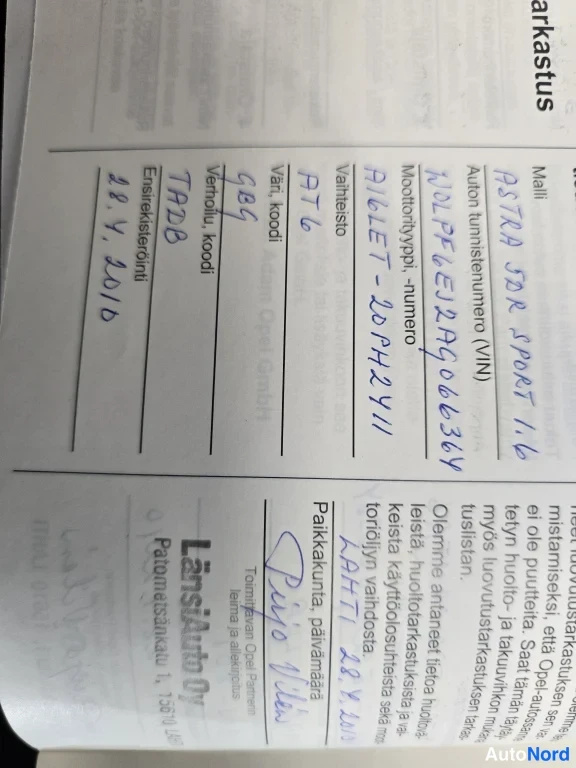 arkastus
Malli
ASTRA 5DR SPORT 1.6
Auton tunnistenumero (VIN)
W0LPF6EJ2AG066364
Moottorityyppi, -numero
A16LET-20PH2411
Vaihteisto
AT6
Väri, koodi
GBG
Verhoilu, koodi
TADB
Ensirekisteröinti
28.4.2010
mistamiseksi, että Opel-autossa
ei ole puutteita. Saat tämän
tetyn huolto- ja takuuvihkon
myös luovutustarkastuksen
tuslistan.
Olemme antaneet tietoa
leistä, huoltotarkastuksista ja
keista käyttöolosuhteista sekä
toriöljyn vaihdosta.
LAHTI 28.4.2010
Paikkakunta, päivämäärä
Pirjo
Toimittavan Opel Partnerin
leima ja allekirjoitus
LänsiAuto Oy
Patometsänkatu 1, 15610
AutoNord